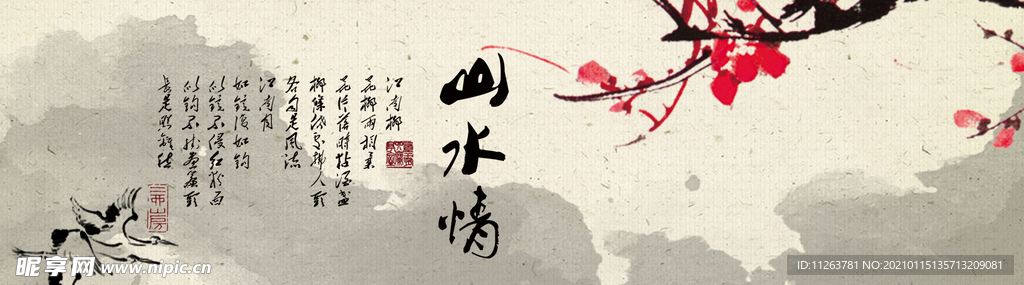 山水情
江南柳
花柳两相柔
花片落时黏酒盏
柳条低处拂人头
各自是风流
江南月
如镜复如钩
似镜不侵红粉面
似钩不挂画帘头
长是照离愁
昵享网 www.nipic.cn
ID:11263781 NO:20210115135713209081